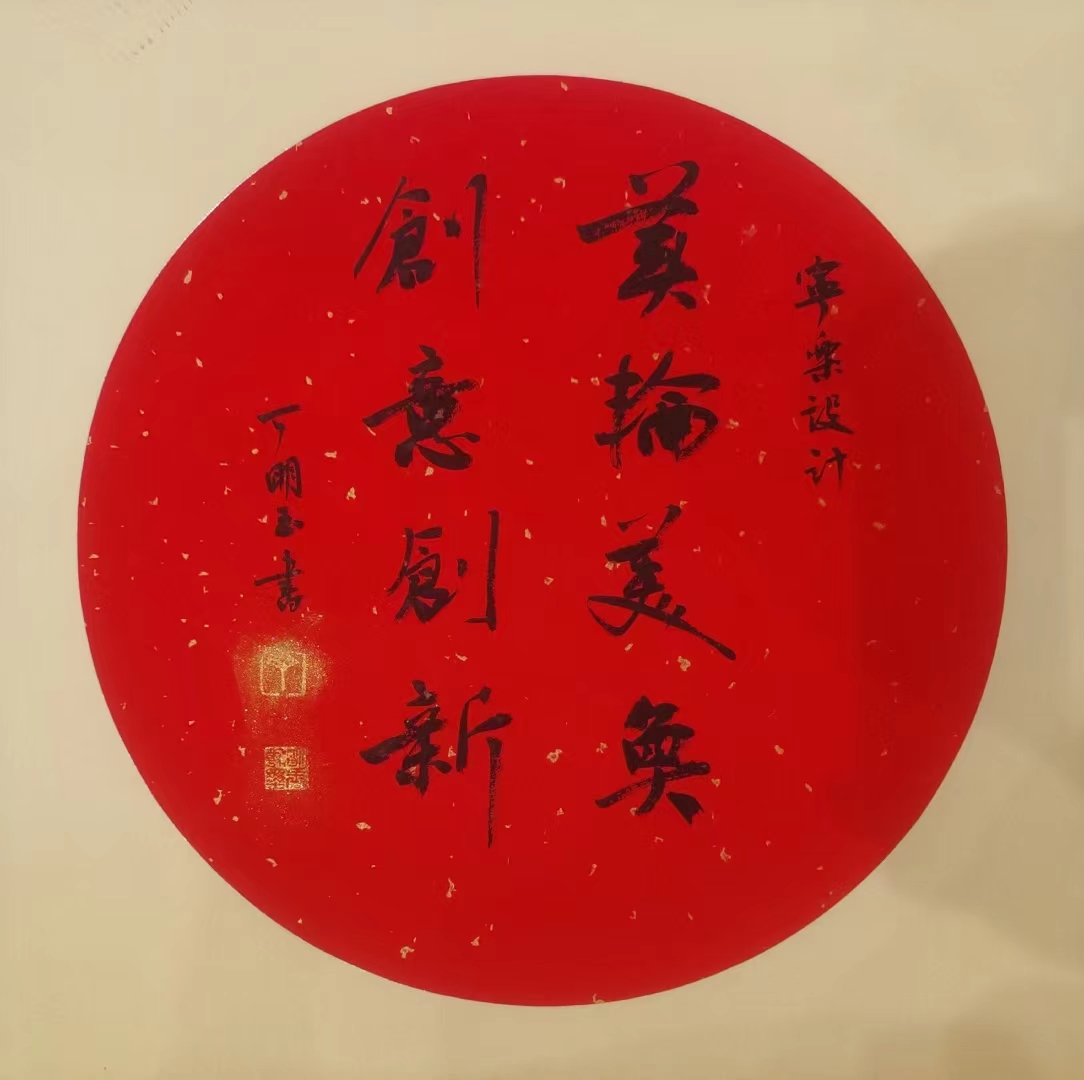 寧樂设计
美輪美奂
創意創新
丁明玉書